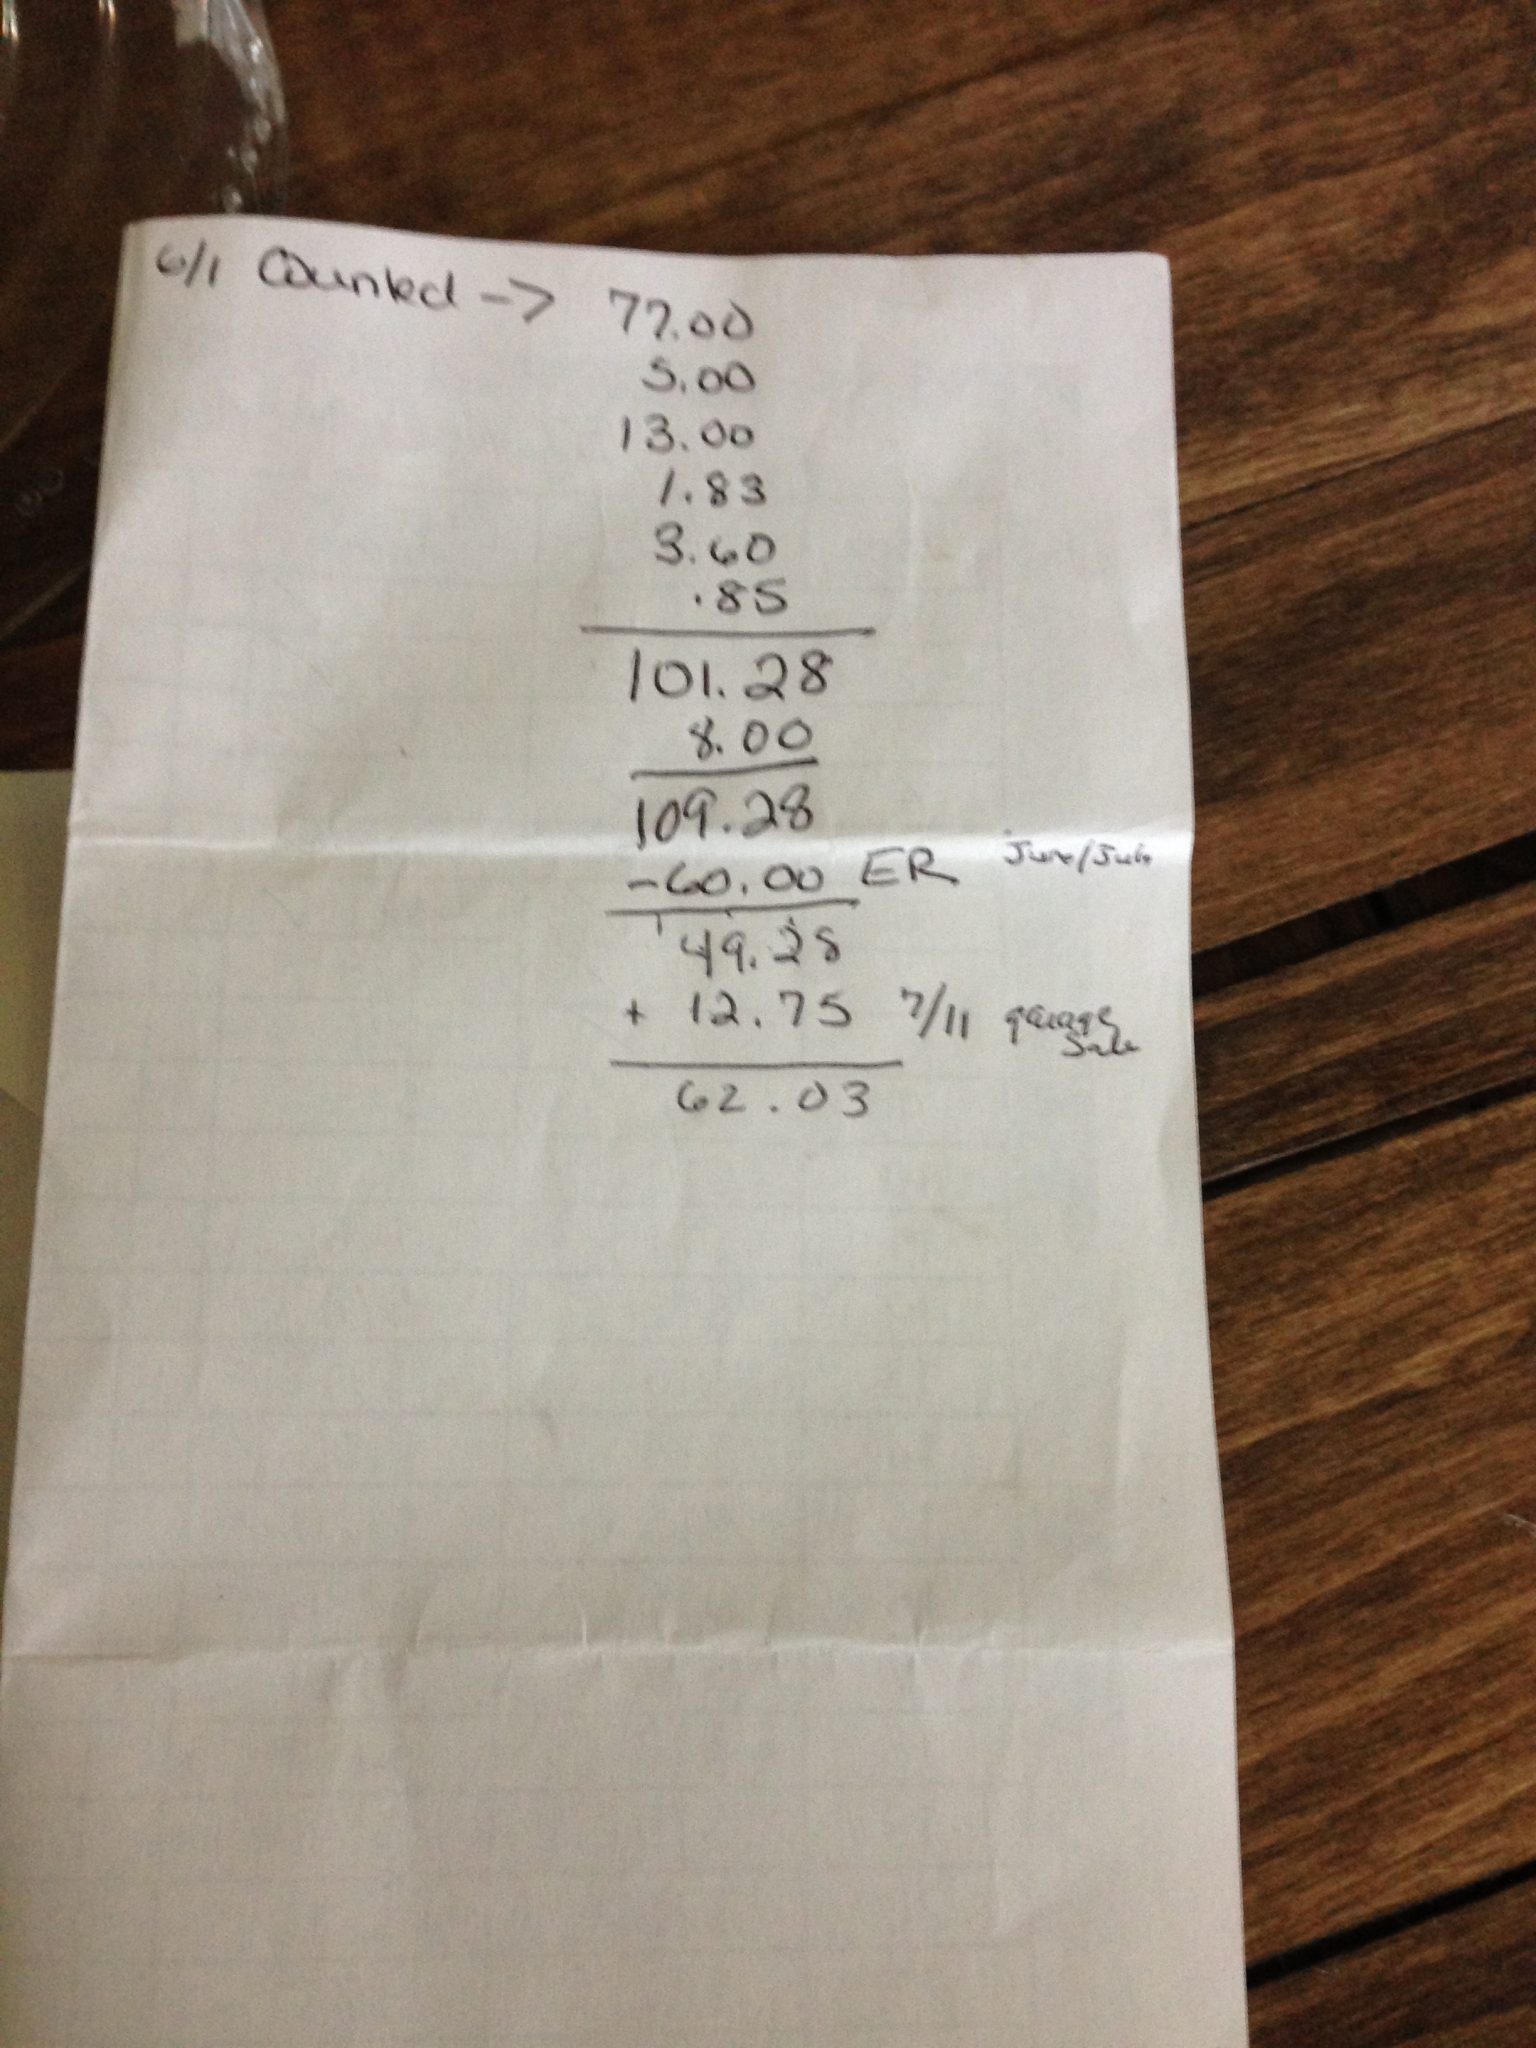 6/1 Counted -> 77.00
5.00
13.00
1.83
3.60
.85
101.28
8.00
109.28
-60.00 ER June/July
49.28
+ 12.75 7/11 garage
Sale
62.03